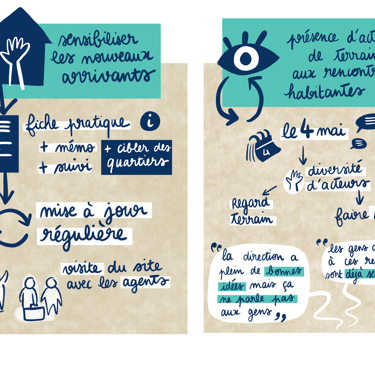 sensibiliser
les nouveaux
arrivants
fiche pratique i
+ mémo
+ suivi
+ cibler des
quartiers
mise à jour
régulière
visite du site
avec les agents
présence d'act
de terrain
aux rencont
habitantes
4
le 4 mai
diversité
d'acteurs
Regard
terrain
faire
"la direction a
plein de bonnes
idées mais ça
ne parle pas
aux gens"
"les gens
à ces re
sont déjà se